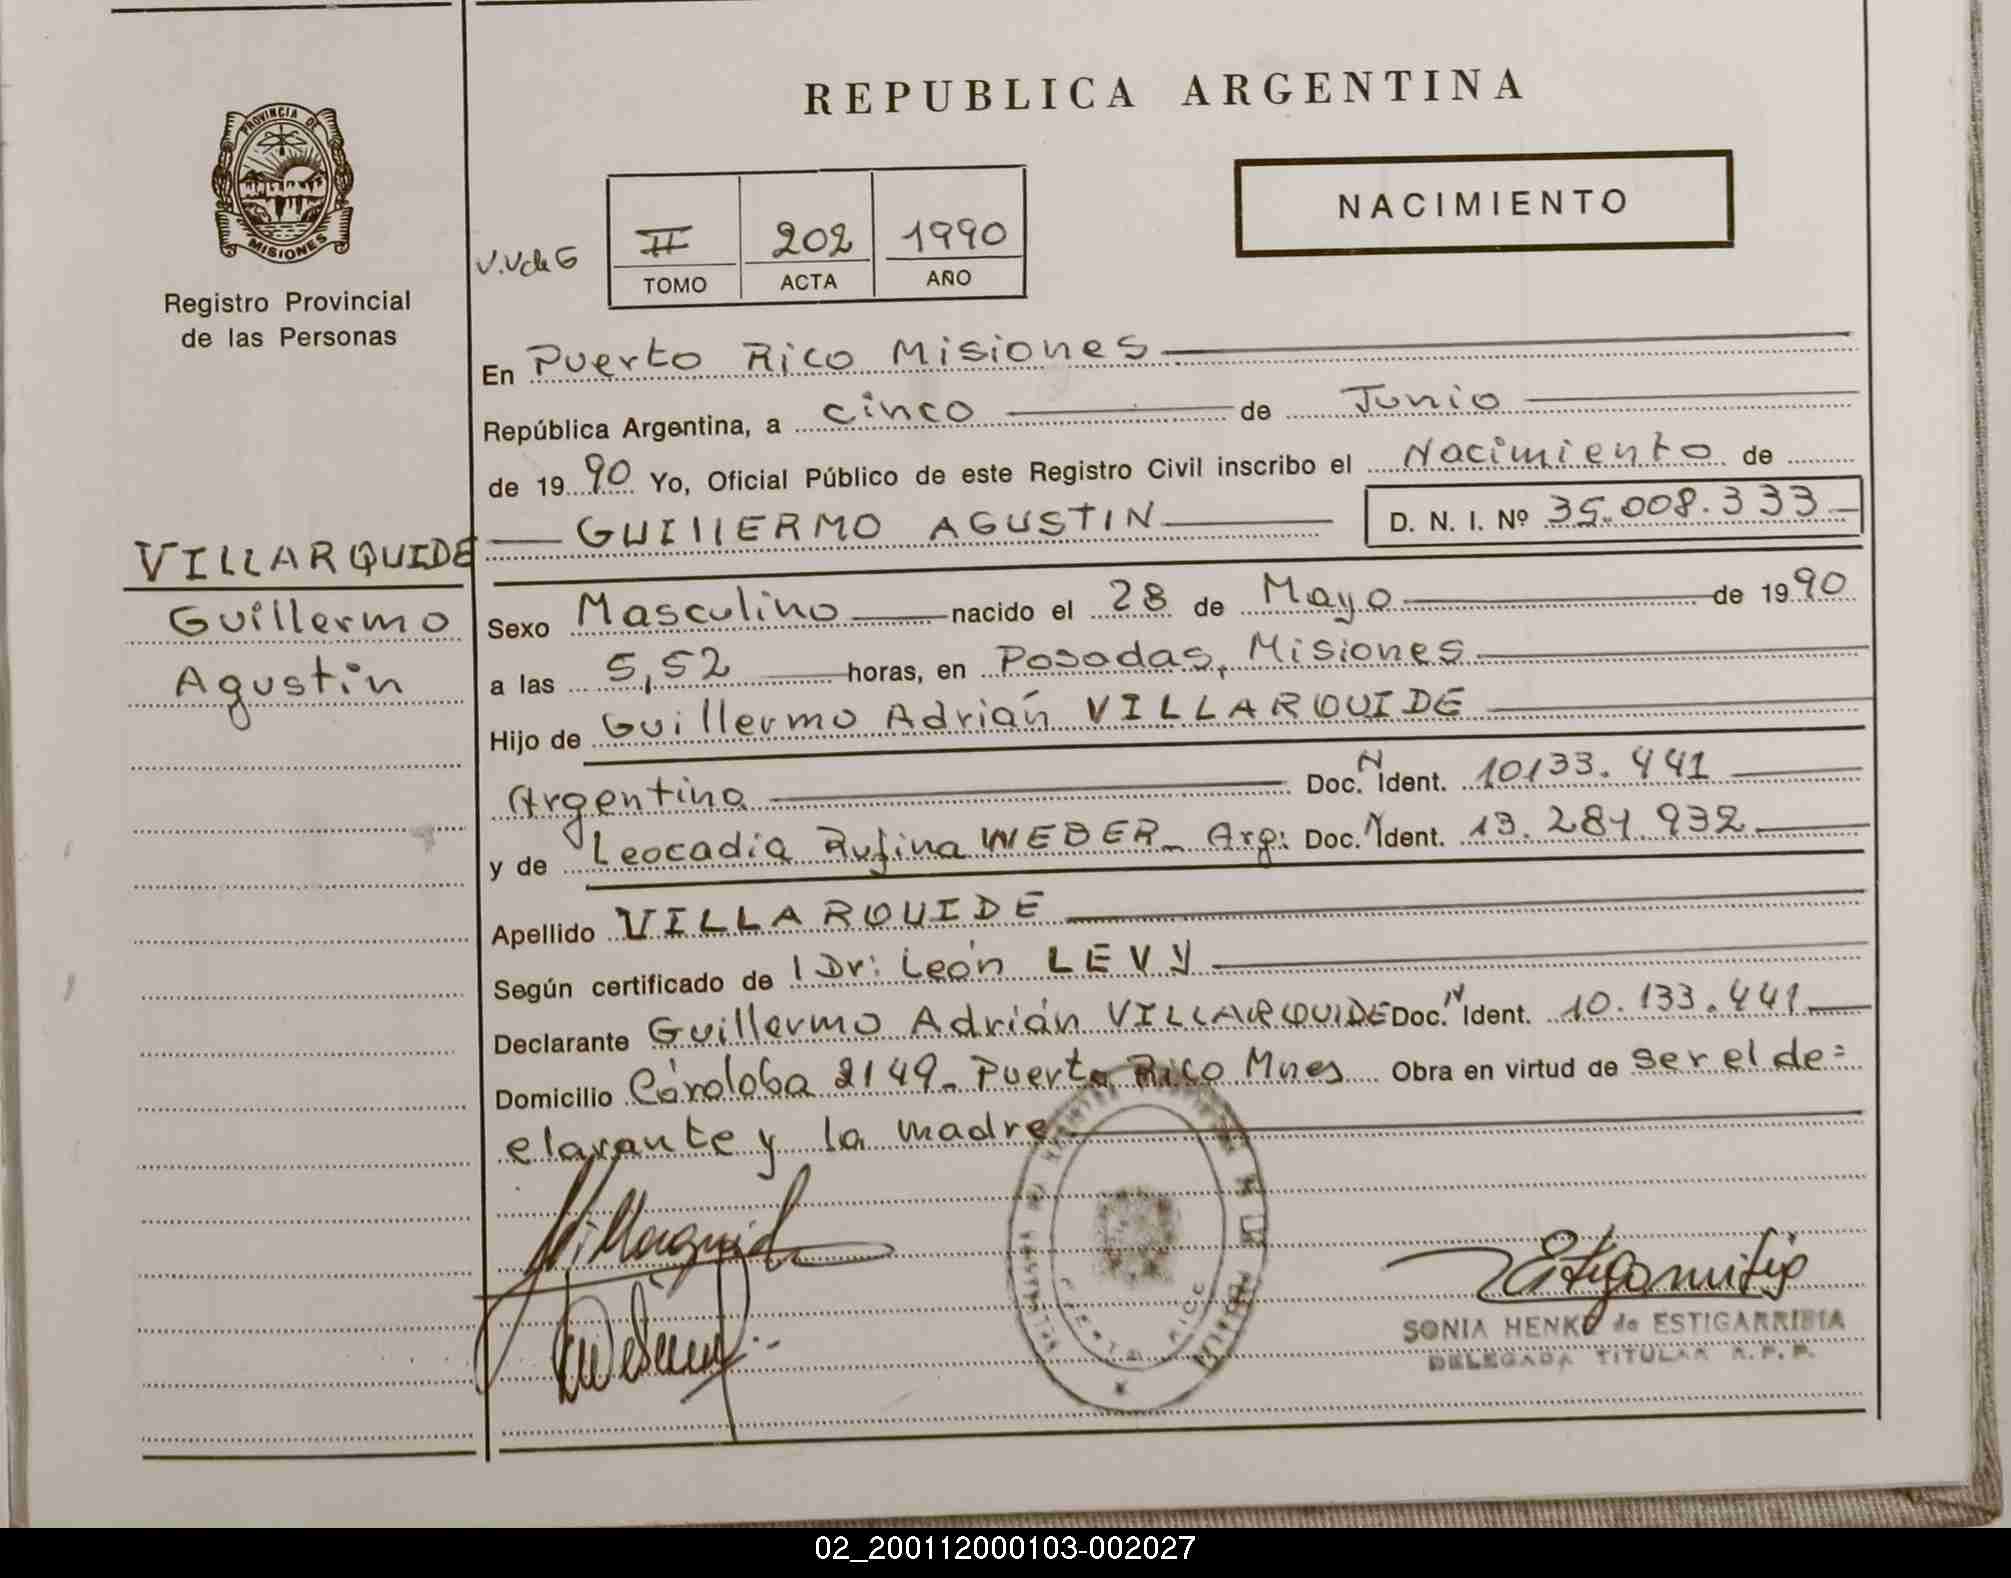 REPUBLICA ARGENTINA
PROVINCIA DE
MISIONES
Registro Provincial
de las Personas
NACIMIENTO
V.V de G
II 202 1990
TOMO ACTA AÑO
En Puerto Rico Misiones
República Argentina, a cinco de Junio
de 1990 Yo, Oficial Público de este Registro Civil inscribo el Nacimiento de
GUIllERMO AGUSTIN D. N. I. Nº 35.008.333
VILLARQUIDE
Guillermo
Agustín
Sexo Masculino nacido el 28 de Mayo de 1990
a las 5,52 horas, en Posadas, Misiones
Hijo de Guillermo Adrián VILLARQUIDE
Argentino Doc. N Ident. 10133.441
y de Leocadia Rufina WEBER_ Arg: Doc. N Ident. 13.281.932
Apellido VILLARQUIDE
Según certificado de Dr: León LEVY
Declarante Guillermo Adrián VILLARQUIDE Doc. N Ident. 10.133.441
Domicilio Córdoba 2149_ Puerto Rico Mnes Obra en virtud de ser el de=
clarante y la madre
SONIA HENKE de ESTIGARRIBIA
DELEGADA TITULAR R.P.P.
02_200112000103-002027